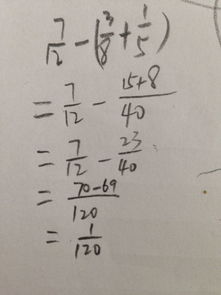 7/12 - (3/8 + 1/5)
= 7/12 - 15+8/40
= 7/12 - 23/40
= 70-69/120
= 1/120